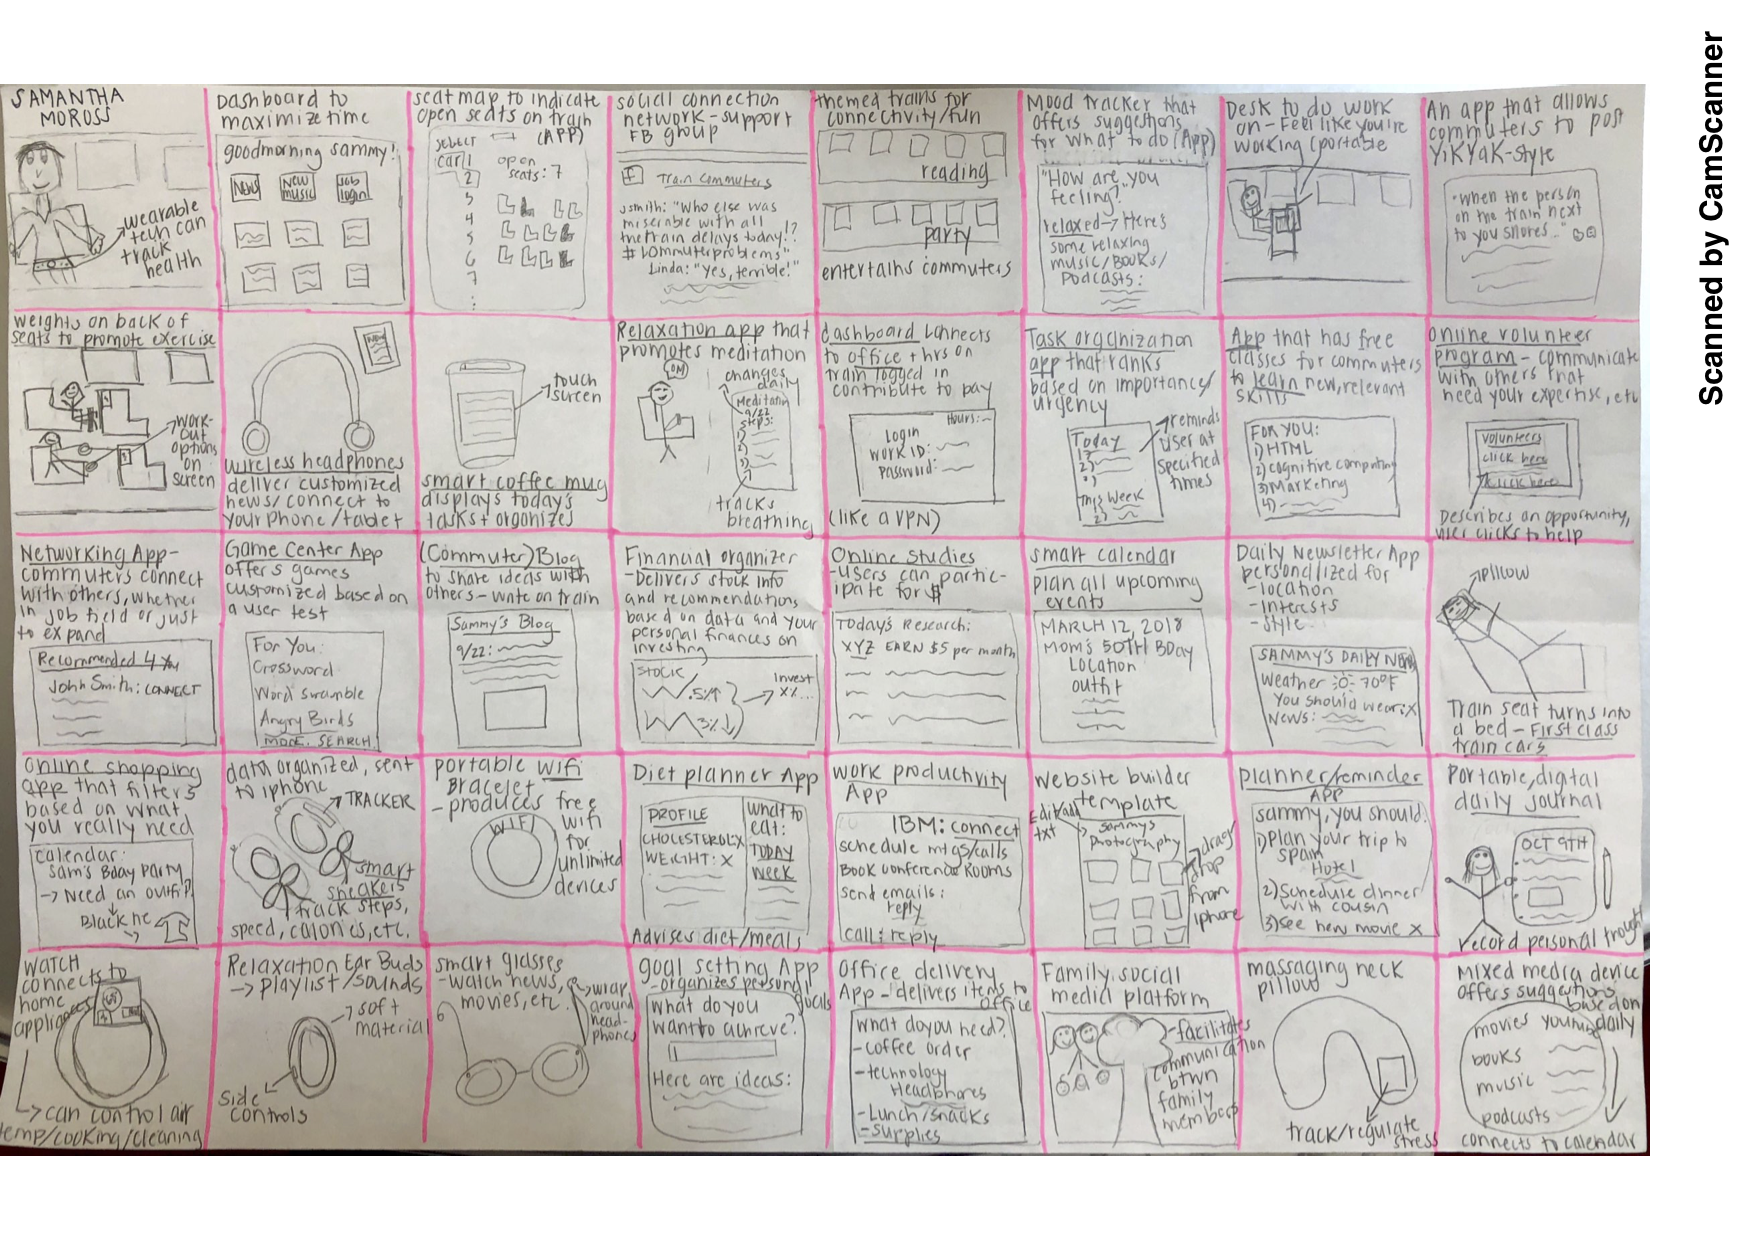 SAMANTHA
MOROSS
wearable
tech can
track
health
Dashboard to
maximize time
goodmorning sammy!
News
New
music
Job
login
seat map to indicate
open seats on train
(APP)
select
car 1
2
3
4
5
6
7
open
seats: 7
social connection
network - support
FB group
Train commuters
jsmith: "Who else was
miserable with all
the train delays today!?
#commuterproblems"
Linda: "Yes, terrible!"
themed trains for
connectivity/fun
reading
party
entertains commuters
Mood tracker that
offers suggestions
for what to do (App)
"How are you
feeling?"
relaxed → Heres
some relaxing
music/Books/
Podcasts:
Desk to do work
on - Feel like you're
working (portable
An app that allows
commuters to post
YiKYaK-style
"when the person
on the train next
to you snores..."
weights on back of
seats to promote exercise
work-
out
options
on
screen
wireless headphones
deliver customized
news/connect to
your phone/tablet
touch
screen
smart coffee mug
displays today's
tasks + organizes
Relaxation app that
promotes meditation
OM
changes
daily
Meditatin
9/22
steps:
1)
2)
3)
tracks
breathing
dashboard connects
to office + hrs on
train logged in
contribute to pay
Hours:
Login
work ID:
password:
(like a VPN)
Task organization
app that ranks
based on importance/
urgency
Today
1)
2)
3)
This Week
2)
reminds
user at
specified
times
App that has free
classes for commuters
to learn new, relevant
skills
FOR YOU:
1) HTML
2) cognitive computing
3) Marketing
4)
online volunteer
program - communicate
with others that
need your expertise, etc
volunteers
click here
click here
Describes an opportunity,
user clicks to help
Networking App-
commuters connect
with others, whether
in job field or just
to expand
Recommended 4 You
John Smith: CONNECT
Game Center App
offers games
customized based on
a user test
For You:
Crossword
Word scramble
Angry Birds
MORE. SEARCH
(Commuter) Blog
to share ideas with
others - write on train
Sammy's Blog
9/22:
Financial organizer
-Delivers stock info
and recommendations
based on data and your
personal finances on
investing
STOCK
.5%↑
3%↓
→ Invest
X%...
Online studies
-users can partic-
ipate for $
Today's Research:
XYZ EARN $5 per month
smart calendar
plan all upcoming
events
MARCH 12, 2018
Mom's 50TH BDay
Location
outfit
Daily Newsletter App
personalized for
-location
-interests
-style
SAMMY'S DAILY NEWS
Weather 70°F
You should wear: X
News:
pillow
Train seat turns into
a bed - First class
train cars
online shopping
app that filters
based on what
you really need
calendar:
Sam's Bday Party
→ Need an outfit?
data organized, sent
to iphone
TRACKER
smart
sneakers
track steps,
speed, calories, etc.
portable wifi
Bracelet
- produces free
wifi
for
unlimited
devices
WIFI
Diet planner App
PROFILE
CHOLESTEROL: X
WEIGHT: X
What to
eat:
TODAY
WEEK
Advises diet/meals
work productivity
App
IBM: connect
schedule mtgs/calls
Book conference Rooms
send emails:
reply
call: reply
website builder
template
Edit/add
txt
sammy's
photography
drag
drop
from
iphone
planner/reminder
APP
sammy, you should:
1) Plan your trip to
spain
Hotel
2) Schedule dinner
with cousin
3) See new movie X
Portable, digital
daily journal
OCT 9TH
record personal trought
WATCH
connects to
home
appliances
→ can control air
temp/cooking/cleaning
Relaxation Ear Buds
→ playlist/sounds
soft
material
side
controls
smart glasses
- watch news,
movies, etc.
wrap
around
head-
phones
goal setting App
- organizes personal
goals
What do you
want to achieve?
Here are ideas:
Office delivery
App - delivers items to
office
What do you need?
-coffee order
-technology
Headphones
-Lunch/snacks
-supplies
Family social
media platform
-facilitates
communication
btwn
family
members
massaging neck
pillow
track/regulate
stress
Mixed media device
offers suggestions
based on
daily
movies
books
music
podcasts
connects to calendar
Scanned by CamScanner